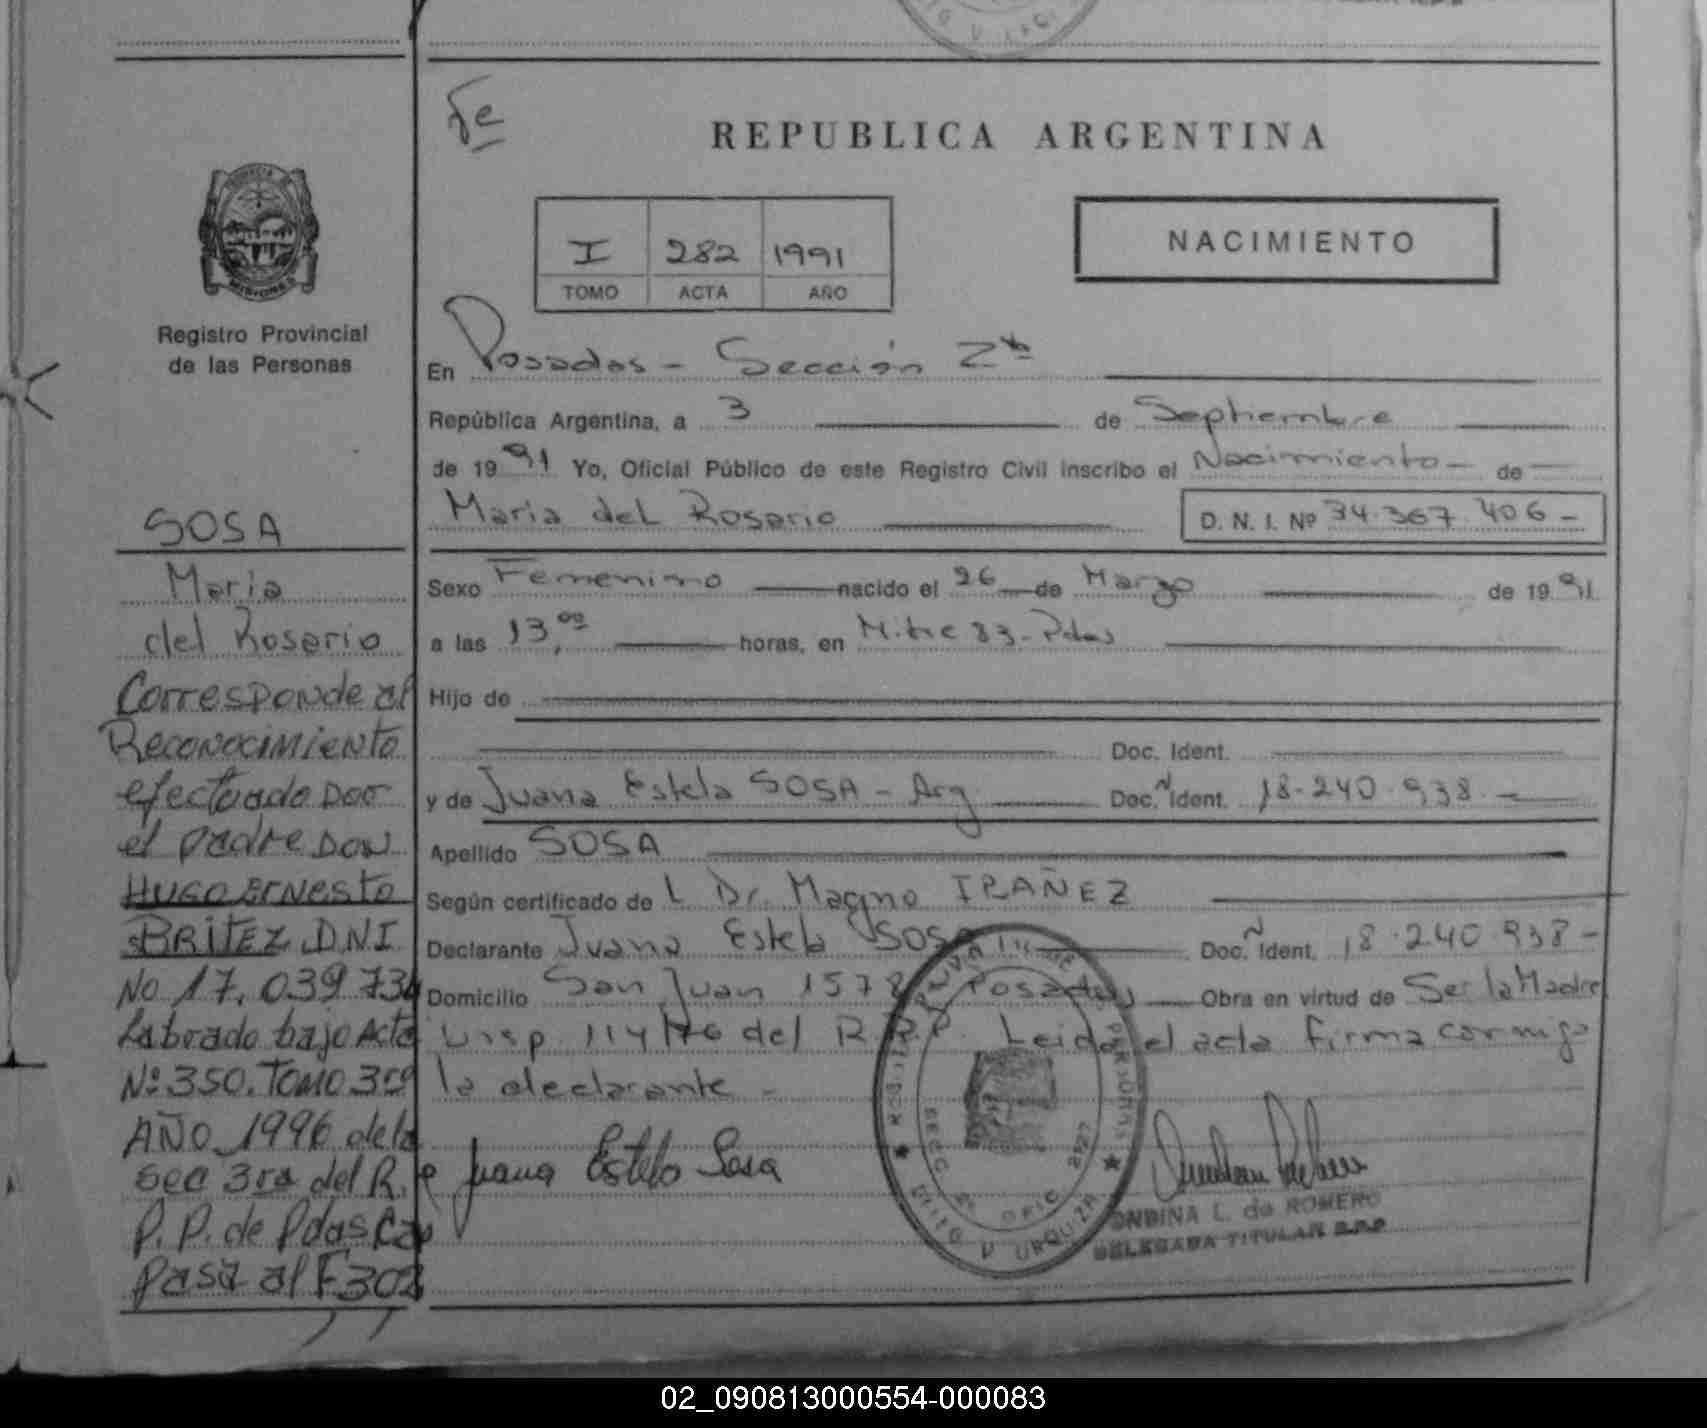 Fe
REPUBLICA ARGENTINA
I 282 1991
TOMO ACTA AÑO
NACIMIENTO
Registro Provincial
de las Personas
En Posadas - Sección 2ª
República Argentina, a 3 de Septiembre
de 1991 Yo, Oficial Público de este Registro Civil inscribo el Nacimiento - de
Maria del Rosario D. N. I. Nº 34.367.406 -
Sexo Femenino nacido el 26 de Marzo de 1991
a las 13,00 horas, en Mitre 83 - Pdas
Hijo de
Doc. Ident.
y de Juana Estela SOSA - Arg. Doc. Ident. 18.240.938. -
Apellido SOSA
Según certificado de L Dr. Magno IBAÑEZ
Declarante Juana Estela SOSA Doc. Ident. 18.240.938 -
Domicilio San Juan 1578 Posadas Obra en virtud de Ser la Madre
Disp. 114/76 del R.R.P. Leida el acta firma conmigo
la declarante -
Juana Estela Sosa
ONDINA L. de ROMERO
DELEGADA TITULAR R.P.P
SOSA
Maria
del Rosario
Corresponde al
Reconocimiento
efectuado por
el padre Don
HUGO ERNESTO
BRITEZ DNI
No 17.039734
Labrado bajo Acta
Nº 350. Tomo 3ro
AÑO 1996 de la
sec 3ra del R.
P. P. de Pdas Cap
Pasa al F302
02_090813000554-000083